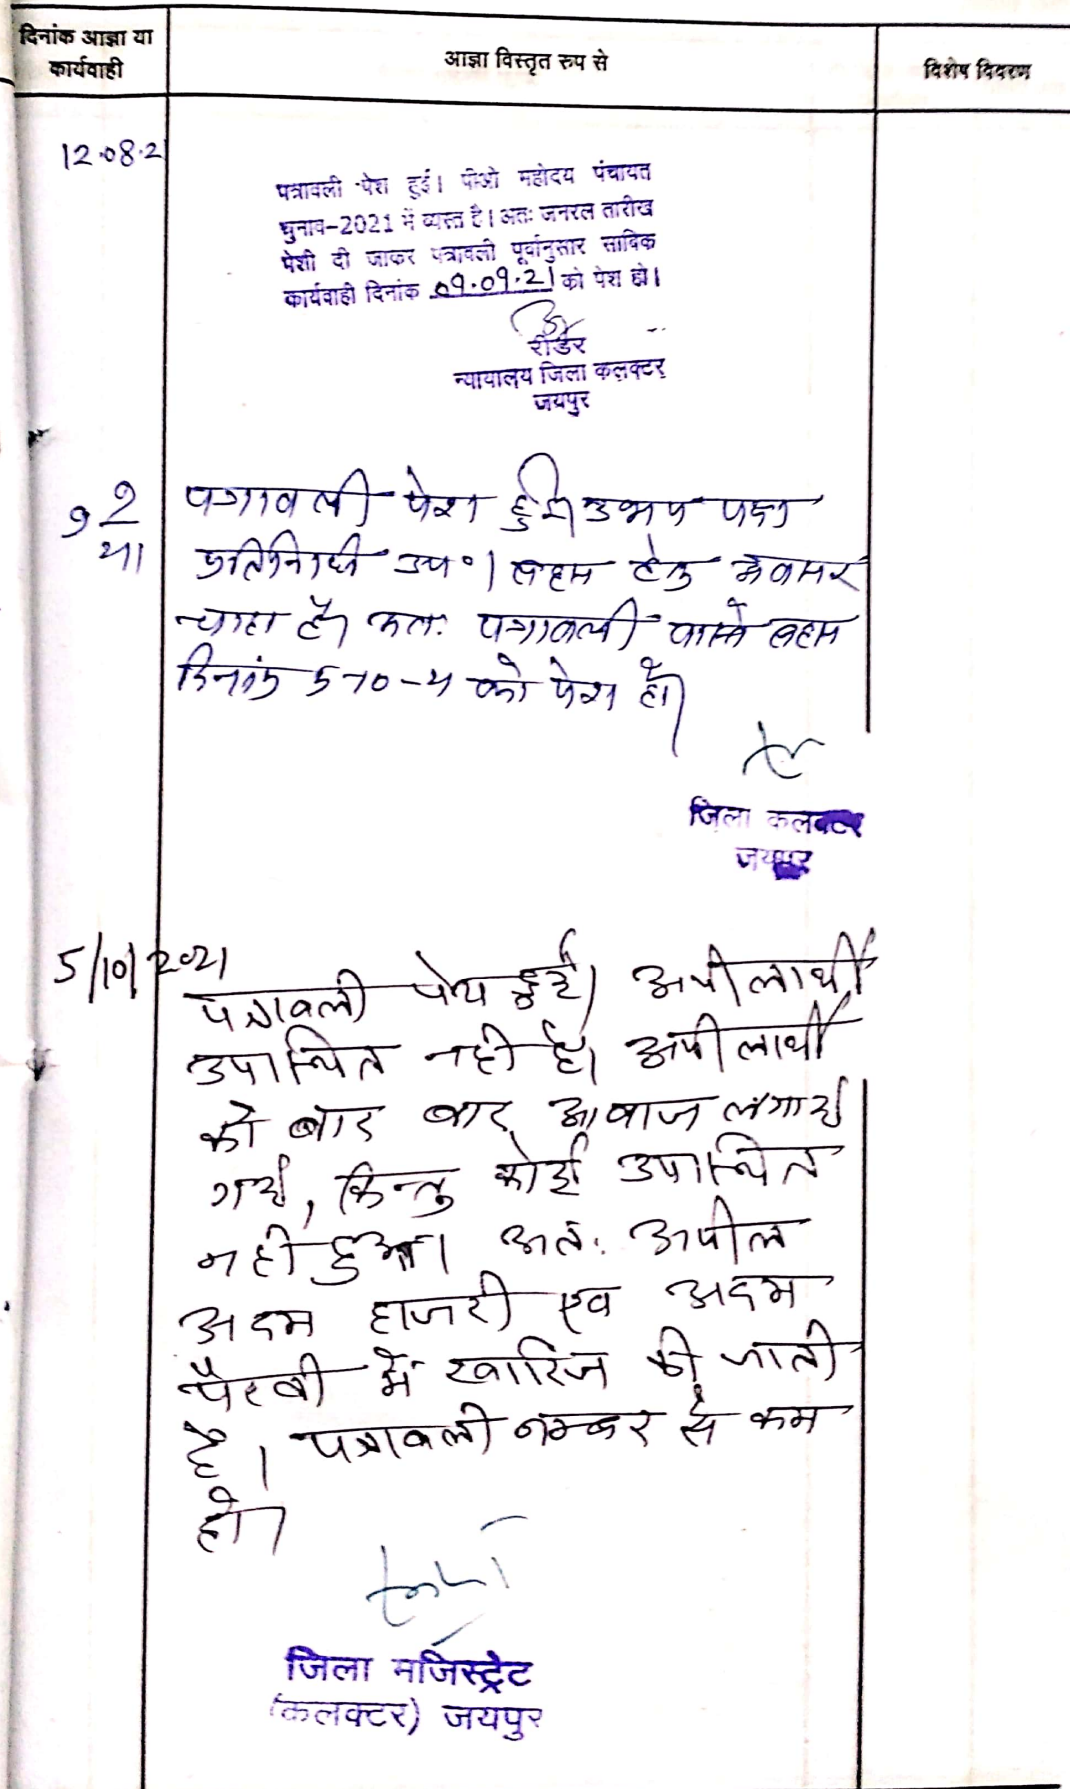 दिनांक आज्ञा या
कार्यवाही
आज्ञा विस्तृत रुप से
विशेष विवरण
12.08.2
पत्रावली पेश हुई। पीओ महोदय पंचायत
चुनाव-2021 में व्यस्त है। अतः जनरल तारीख
पेशी दी जाकर पत्रावली पूर्वानुसार साबिक
कार्यवाही दिनांक 09.09.21 को पेश हो।
रीडर
न्यायालय जिला कलक्टर
जयपुर
9
9
21
पत्रावली पेश हुई। उभय पक्ष
प्रतिनिधी उप०। बहस हेतु अवसर
चाहा है। अतः पत्रावली वास्ते बहस
दिनांक 5-10-21 को पेश हो।
जिला कलक्टर
जयपुर
5/10/2021
पत्रावली पेश हुई। अपीलार्थी
उपस्थित नही है। अपीलार्थी
को बार बार आवाज लगाई
गई, किन्तु कोई उपस्थित
नही हुआ। अतः अपील
अदम हाजरी एव अदम
पैरवी में खारिज की जाती
है। पत्रावली नम्बर से कम
हो।
जिला मजिस्ट्रेट
(कलक्टर) जयपुर